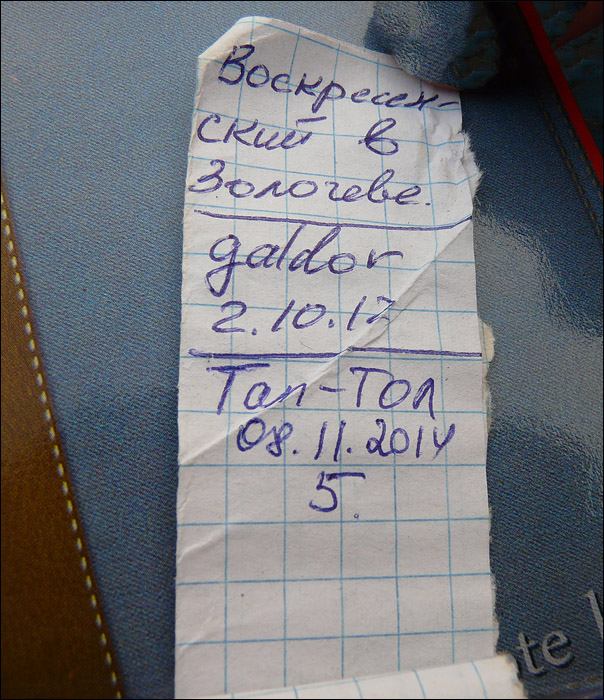 Воскресен-
ский в
Золочеве.
galdor
2.10.12
Тап-Топ
08.11.2014
5.
te